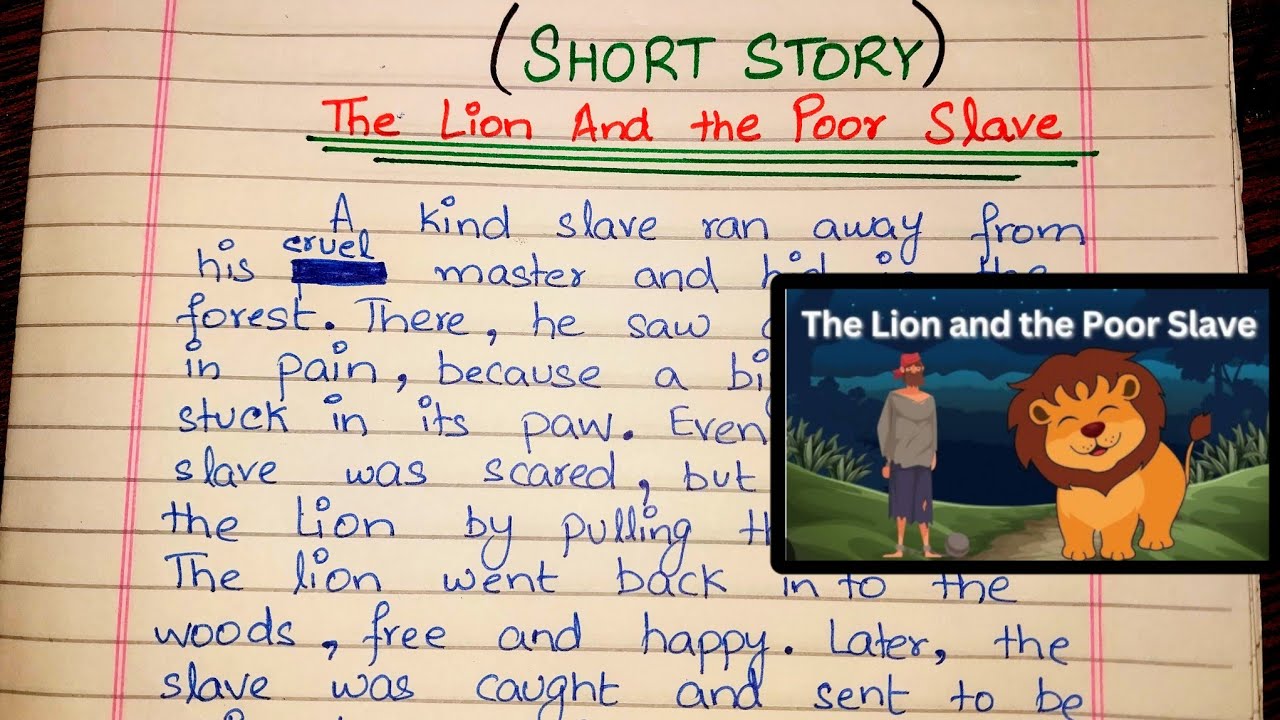 (SHORT STORY)
The Lion And the Poor Slave
A kind slave ran away from
cruel
his master and hid in the
forest. There, he saw
in pain, because a
stuck in its paw. Even
slave was scared, but
the Lion by pulling
The lion went back in to the
woods, free and happy. Later, the
slave was caught and sent to be
The Lion and the Poor Slave